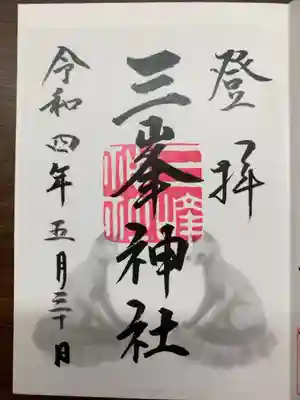 登拝
三峯神社
令和四年五月三十日